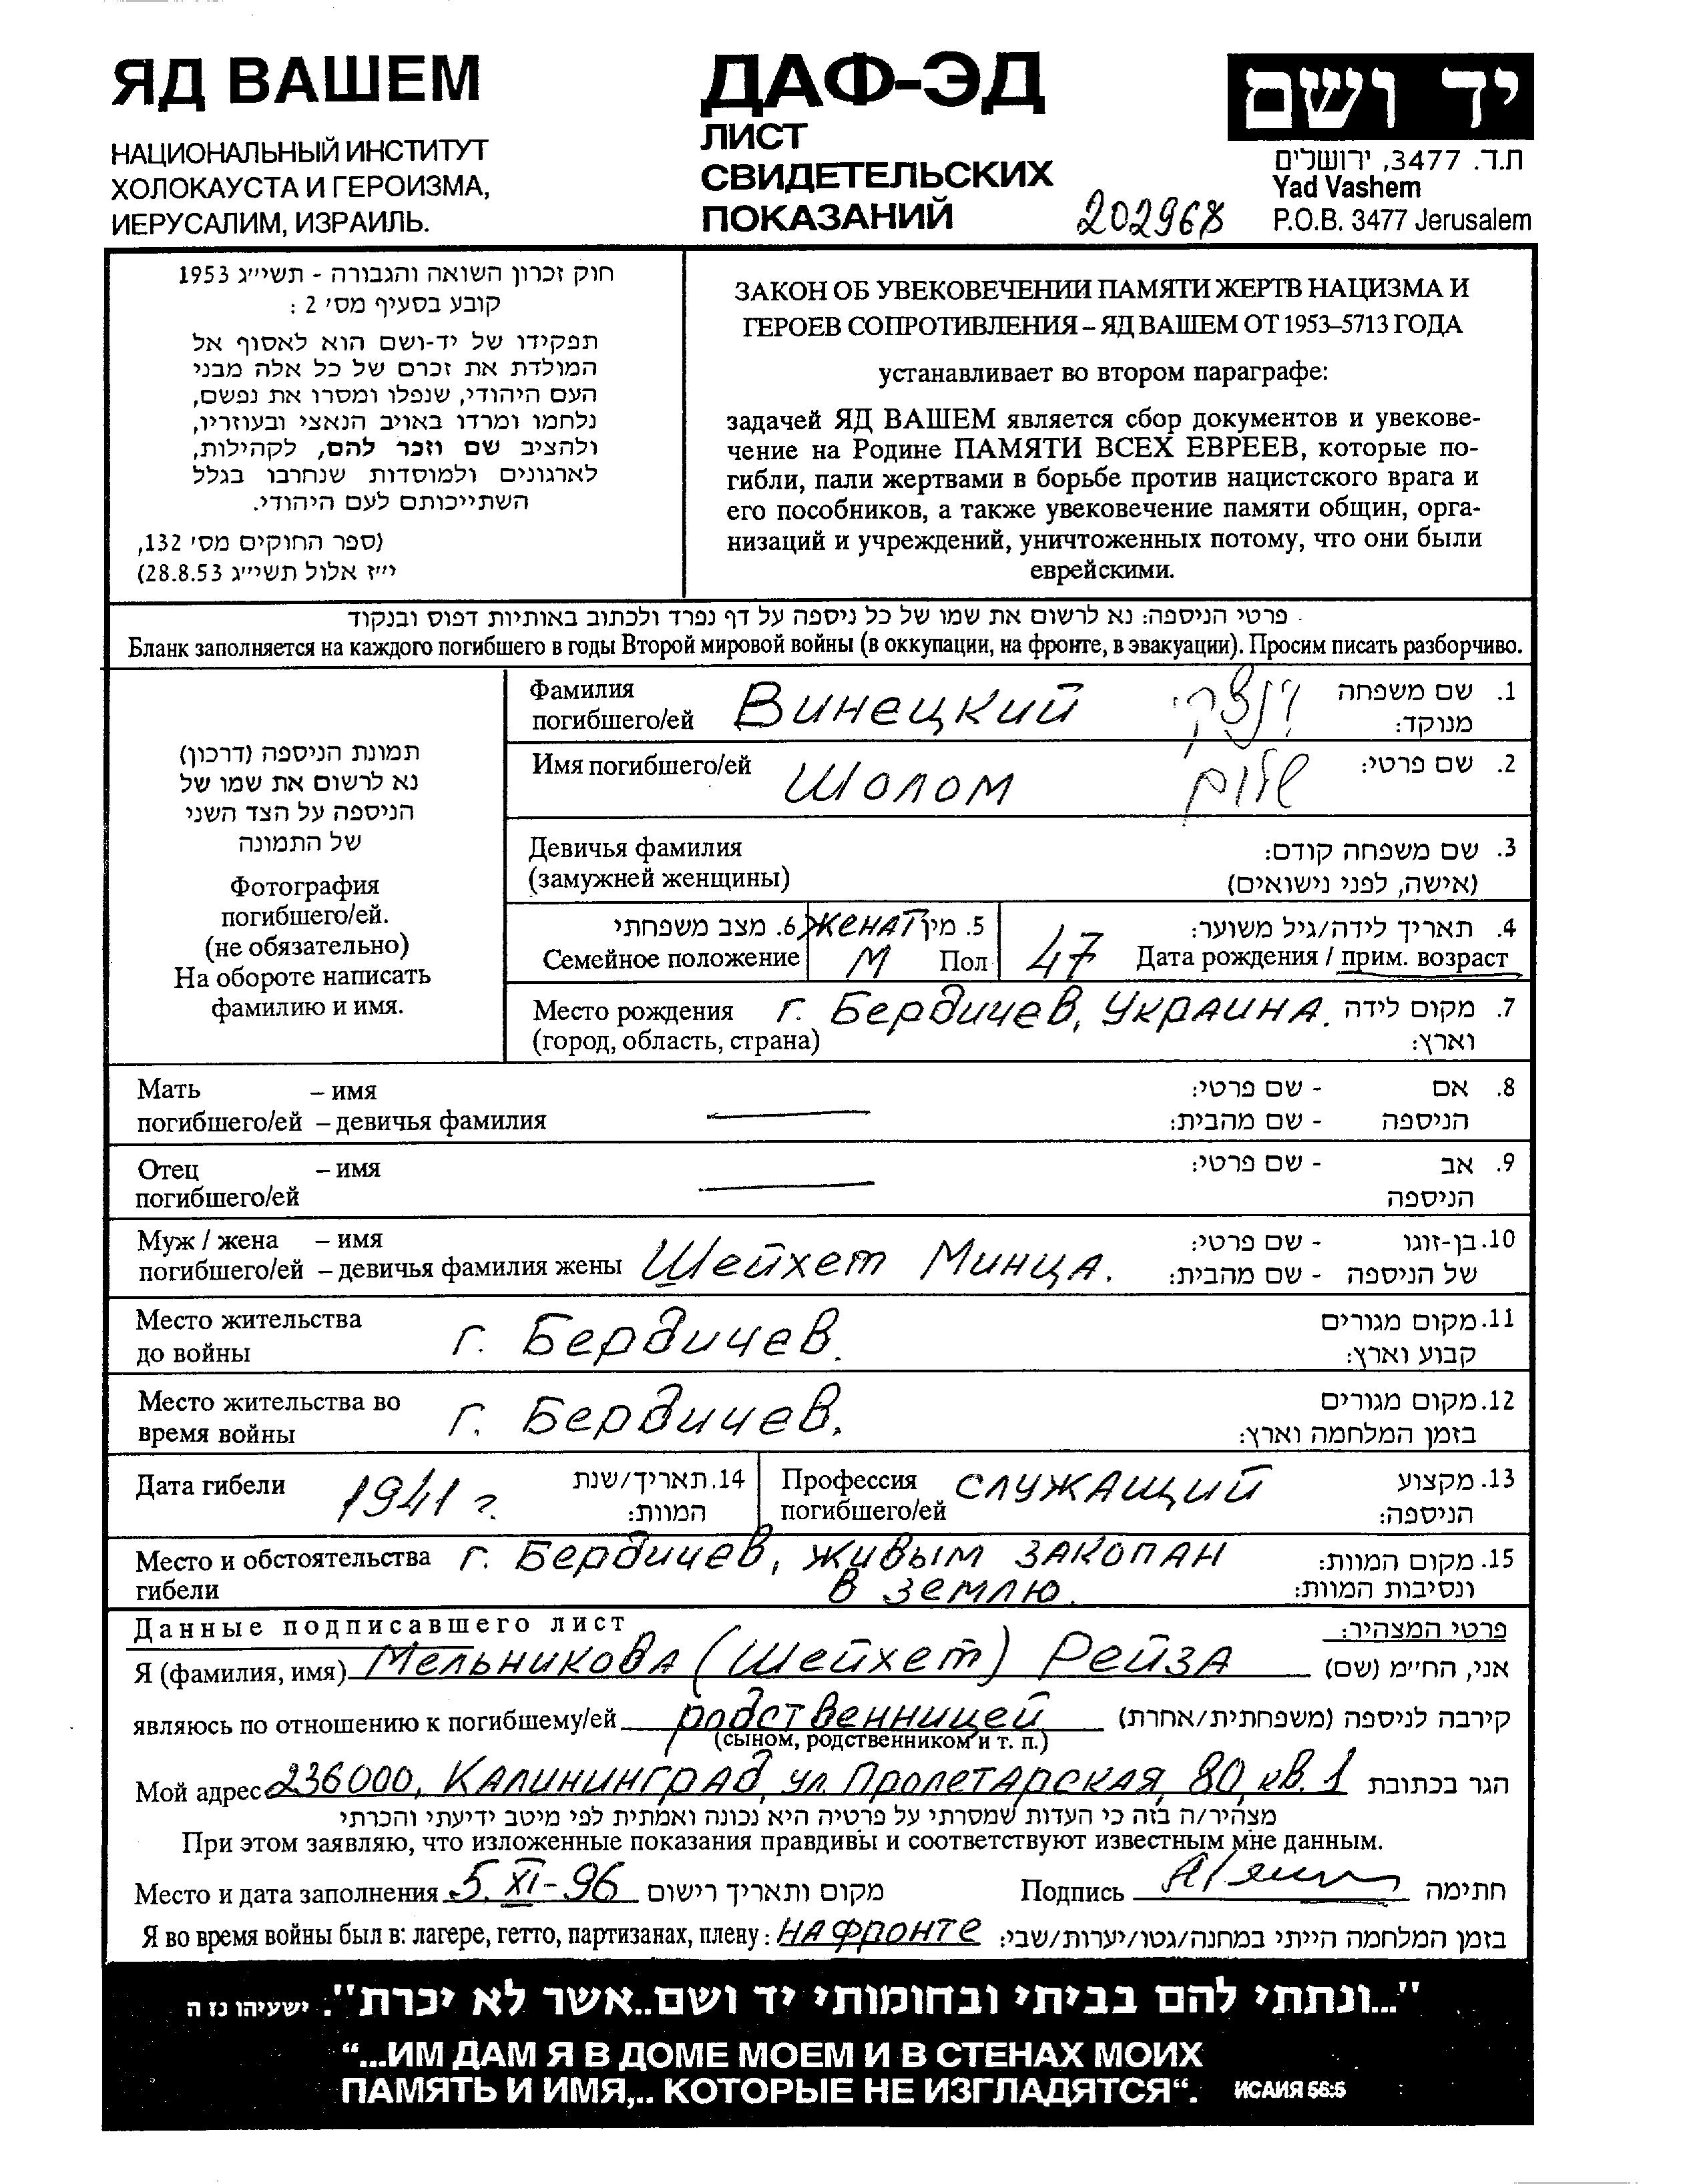 ЯД ВАШЕМ
НАЦИОНАЛЬНЫЙ ИНСТИТУТ
ХОЛОКАУСТА И ГЕРОИЗМА,
ИЕРУСАЛИМ, ИЗРАИЛЬ.
ДАФ-ЭД
ЛИСТ
СВИДЕТЕЛЬСКИХ
ПОКАЗАНИЙ
202968
יד ושם
ת.ד. 3477, ירושלים
Yad Vashem
P.O.B. 3477 Jerusalem
חוק זכרון השואה והגבורה - תשי״ג 1953
קובע בסעיף מס׳ 2 :
תפקידו של יד-ושם הוא לאסוף אל
המולדת את זכרם של כל אלה מבני
העם היהודי, שנפלו ומסרו את נפשם,
נלחמו ומרדו באויב הנאצי ובעוזריו,
ולהציב שם וזכר להם, לקהילות,
לארגונים ולמוסדות שנחרבו בגלל
השתייכותם לעם היהודי.
(ספר החוקים מס׳ 132,
י״ז אלול תשי״ג 28.8.53)
ЗАКОН ОБ УВЕКОВЕЧЕНИИ ПАМЯТИ ЖЕРТВ НАЦИЗМА И
ГЕРОЕВ СОПРОТИВЛЕНИЯ – ЯД ВАШЕМ ОТ 1953–5713 ГОДА
устанавливает во втором параграфе:
задачей ЯД ВАШЕМ является сбор документов и увекове-
чение на Родине ПАМЯТИ ВСЕХ ЕВРЕЕВ, которые по-
гибли, пали жертвами в борьбе против нацистского врага и
его пособников, а также увековечение памяти общин, орга-
низаций и учреждений, уничтоженных потому, что они были
еврейскими.
פרטי הניספה: נא לרשום את שמו של כל ניספה על דף נפרד ולכתוב באותיות דפוס ובנקוד
Бланк заполняется на каждого погибшего в годы Второй мировой войны (в оккупации, на фронте, в эвакуации). Просим писать разборчиво.
תמונת הניספה (דרכון)
נא לרשום את שמו של
הניספה על הצד השני
של התמונה
Фотография
погибшего/ей.
(не обязательно)
На обороте написать
фамилию и имя.
Фамилия Винецкий 1. שם משפחה
погибшего/ей מנוקד:
Имя погибшего/ей Шолом שלום 2. שם פרטי:
Девичья фамилия 3. שם משפחה קודם:
(замужней женщины) (אישה, לפני נישואים)
6. מצב משפחתי женат 5. מין 4. תאריך לידה/גיל משוער:
Семейное положение М Пол 47 Дата рождения / прим. возраст
Место рождения г. Бердичев, Украина. 7. מקום לידה
(город, область, страна) וארץ:
Мать – имя 8. אם - שם פרטי:
погибшего/ей – девичья фамилия הניספה - שם מהבית:
Отец – имя 9. אב - שם פרטי:
погибшего/ей הניספה
Муж / жена – имя 10. בן-זוגו - שם פרטי:
погибшего/ей – девичья фамилия жены Шейхет Минца. של הניספה - שם מהבית:
Место жительства г. Бердичев. 11. מקום מגורים
до войны קבוע וארץ:
Место жительства во г. Бердичев. 12. מקום מגורים
время войны בזמן המלחמה וארץ:
Дата гибели 1941 г. 14. תאריך/שנת
המוות:
Профессия служащий 13. מקצוע
погибшего/ей הניספה:
Место и обстоятельства г. Бердичев, живым закопан 15. מקום המוות:
гибели в землю. ונסיבות המוות:
Данные подписавшего лист פרטי המצהיר:
Я (фамилия, имя) Мельникова (Шейхет) Рейза אני, הח״מ (שם)
являюсь по отношению к погибшему/ей родственницей קירבה לניספה (משפחתית/אחרת)
(сыном, родственником и т. п.)
Мой адрес 236000, Калининград, ул. Пролетарская, 80, кв. 1 הגר בכתובת
מצהיר/ה בזה כי העדות שמסרתי על פרטיה היא נכונה ואמתית לפי מיטב ידיעתי והכרתי
При этом заявляю, что изложенные показания правдивы и соответствуют известным мне данным.
Место и дата заполнения 5. XI-96 מקום ותאריך רישום Подпись חתימה
Я во время войны был в: лагере, гетто, партизанах, плену: на фронте בזמן המלחמה הייתי במחנה/גטו/יערות/שבי:
"...ונתתי להם בביתי ובחומותי יד ושם..אשר לא יכרת". ישעיהו נז ה
“...ИМ ДАМ Я В ДОМЕ МОЕМ И В СТЕНАХ МОИХ
ПАМЯТЬ И ИМЯ,.. КОТОРЫЕ НЕ ИЗГЛАДЯТСЯ“. ИСАИЯ 56:5